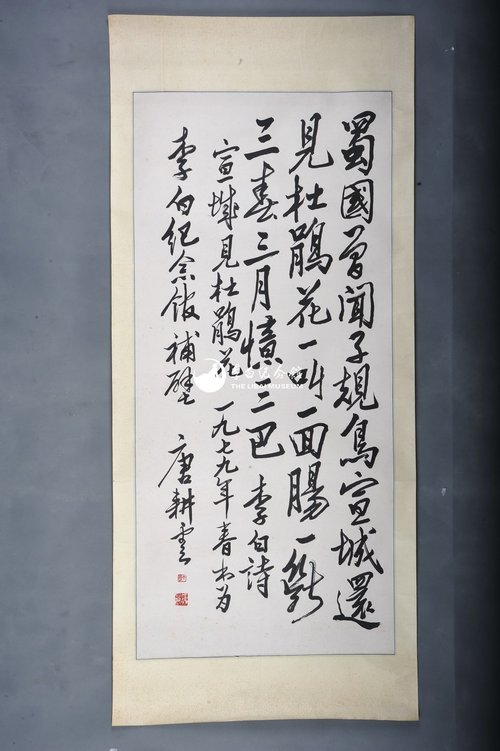 蜀國曾聞子規鳥宣城還
見杜鵑花一叫一回腸一斷
三春三月憶三巴 李白詩
宣城見杜鵑花 一九七九年春書为
李白纪念馆補壁 唐耕雲
李白纪念館
THE LIBAI MUSEUM